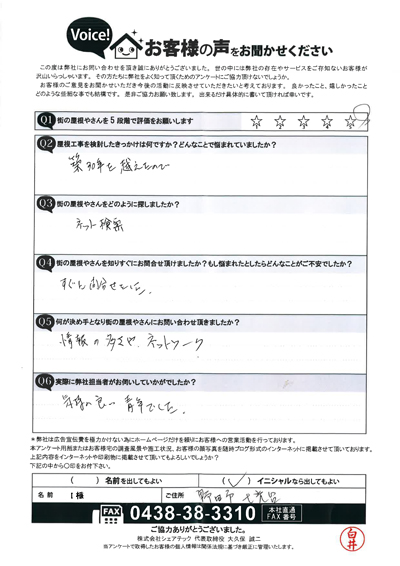 Voice!
お客様の声をお聞かせください
この度は弊社にお問い合わせを頂き誠にありがとうございました。世の中には弊社の存在やサービスをご存知ないお客様が
沢山いらっしゃいます。その方たちに弊社をよく知って頂くためのアンケートにご協力頂けないでしょうか。
お客様のご意見をお聞かせいただき今後の活動に反映させていただきたいと考えております。良かったこと、嬉しかったこと
どのような些細な事でも結構です。是非ご協力お願い致します。出来るだけ具体的に書いて頂ければ幸いです。
Q1 街の屋根やさんを5段階で評価をお願いします ☆ ☆ ☆ ☆ ☆
Q2 屋根工事を検討したきっかけは何ですか?どんなことで悩まれていましたか?
築30年を越えたので
Q3 街の屋根やさんをどのように探しましたか?
ネット検索
Q4 街の屋根やさんを知りすぐにお問合せ頂けましたか?もし悩まれたとしたらどんなことがご不安でしたか?
すぐに問合せをした。
Q5 何が決め手となり街の屋根やさんにお問い合わせ頂きましたか?
情報の多さや、ネットワーク
Q6 実際に弊社担当者がお伺いしていかがでしたか?
気持の良い青年でした。
*弊社は広告宣伝費を極力かけない為にホームページだけを頼りにお客様への営業活動を行っております。
本アンケート用紙またはお客様宅の調査風景や施工状況、お客様の顔写真を随時ブログ形式のインターネットに掲載させて頂いております。
上記内容をインターネットや印刷物に掲載させて頂いてもよろしいでしょうか?
下記の中から〇印をお付下さい。
( ) 名前を出してもよい (✓) イニシャルなら出してもよい
名前 I様 ご住所 野田市
FAX 0438-38-3310 本社直通 FAX番号
ご協力ありがとうございました。
株式会社シェアテック 代表取締役 大久保 誠二
当アンケートで取得したお客様の個人情報は関係法規に基づき厳正に管理いたします。
白井